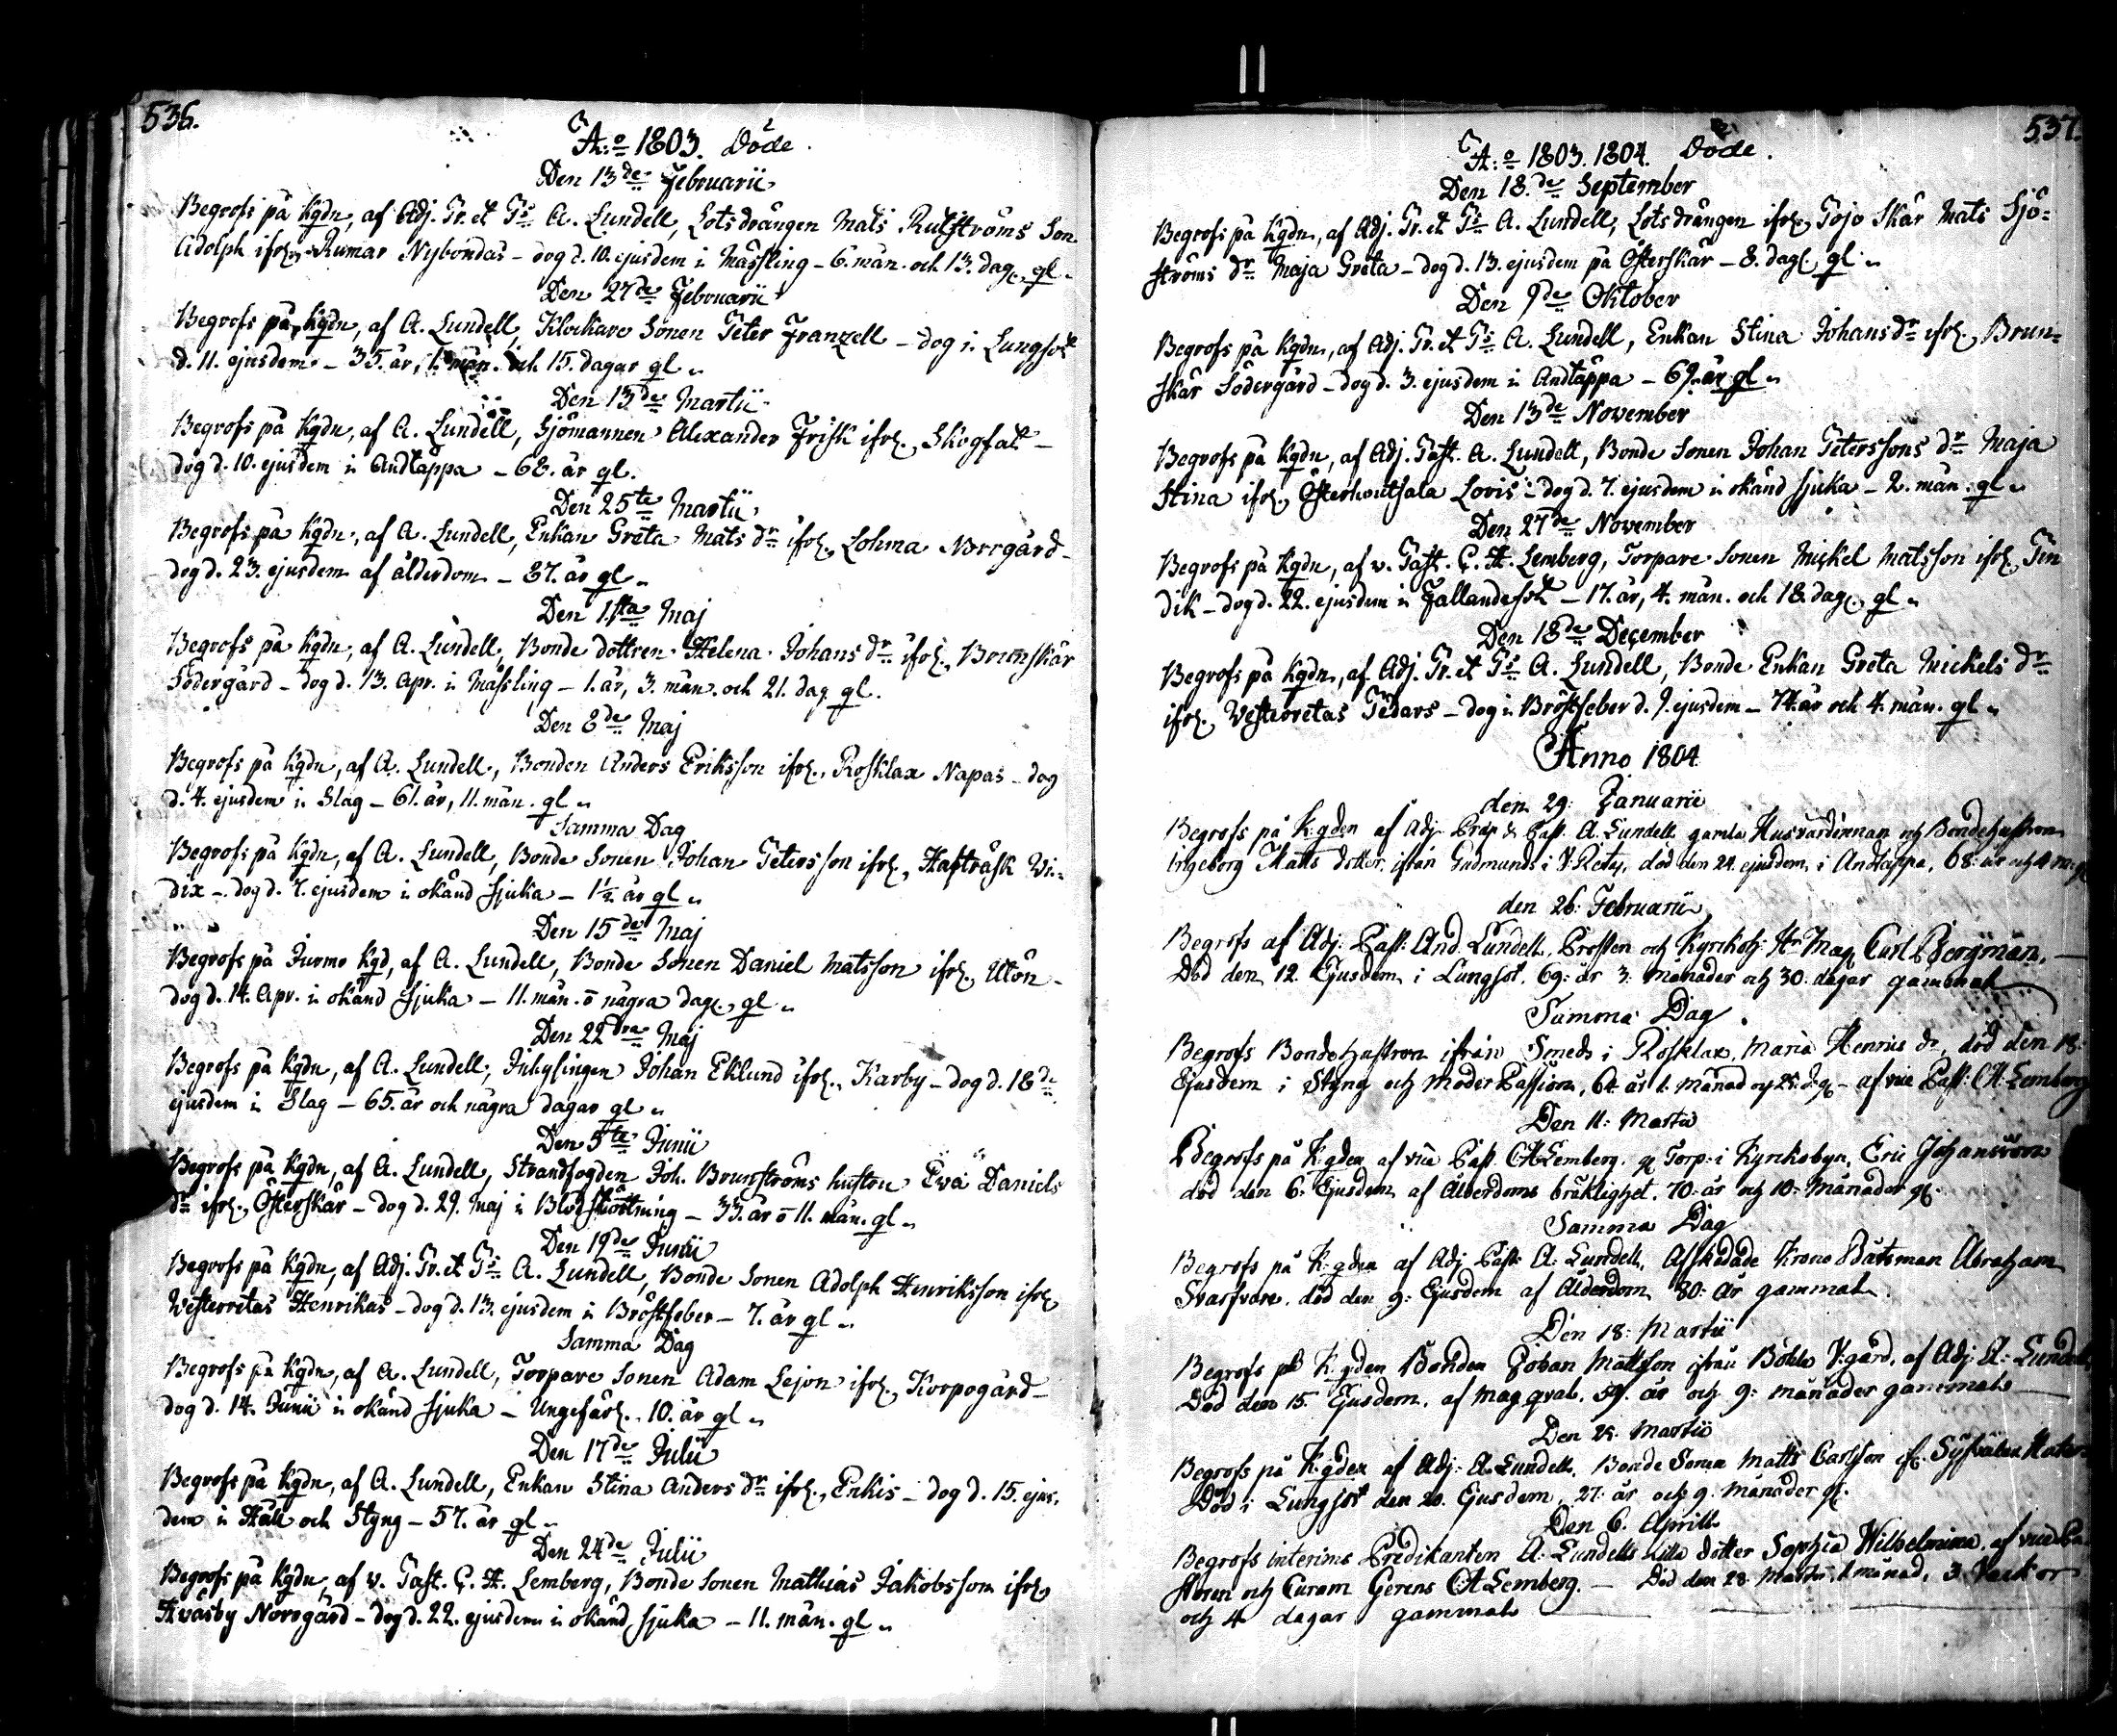 536.
A:o 1803. Döde.
Den 13de Februarii
Begrofs på Kgdn, af Adj. Pr. et Ps. A. Lundell, Lotsdrängen Mats Rutströms Son
Adolph ifrn Rumar Nybondas - dog d. 10. ejusdem i Mässling - 6. mån. och 13. dag. gl.
Den 27de Februarii
Begrofs på Kgdn, af A. Lundell, Klockare Sonen Peter Franzell - dog i Lungsot
d. 11. ejusdem - 35. år, 1. mån. och 15. dagar gl.
Den 13de Martii
Begrofs på Kgdn, af A. Lundell, Sjömannen Alexander Frisk ifrn, Skogfat -
dog d. 10. ejusdem i Andtäppa - 68. år gl.
Den 25te Martii
Begrofs på Kgdn, af A. Lundell, Enkan Greta Mats dr ifrn, Lohma Norrgård -
dog d. 23. ejusdem af ålderdom - 87. år gl.
Den 1sta Maj
Begrofs på Kgdn, af A. Lundell, Bonde dottren Helena Johans dr ifrn, Brunskär
Södergård - dog d. 13. Apr. i Mässling - 1. år, 3. mån. och 21. dag gl.
Den 8de Maj
Begrofs på Kgdn, af A. Lundell, Bonden Anders Eriksson ifrn, Rosklax Napas - dog
d. 4. ejusdem i Slag - 61. år, 11. mån. gl.
Samma Dag
Begrofs på Kgdn, af A. Lundell, Bonde Sonen Johan Petersson ifrn, Hafträsk Wi-
dix - dog d. 7. ejusdem i okänd sjuka - 1½ år gl.
Den 15de Maj
Begrofs på Jurmo Kgd, af A. Lundell, Bonde Sonen Daniel Matsson ifrn, Utön -
dog d. 14. Apr. i okänd sjuka - 11. mån. o några dag. gl.
Den 22dra Maj
Begrofs på Kgdn, af A. Lundell, Inhysingen Johan Eklund ifrn, Karby - dog d. 18de
ejusdem i Slag - 65. år och några dagar gl.
Den 5te Junii
Begrofs på Kgdn, af A. Lundell, Strandfogden Joh. Brunströms hustru Ewa Daniels
dr ifrn, Österskär - dog d. 29. Maj i Blodstörtning - 33. år o 11. mån. gl.
Den 19de Junii
Begrofs på Kgdn, af Adj. Pr. et Ps. A. Lundell, Bonde Sonen Adolph Henriksson ifrn
Westerretas Henrikas - dog d. 13. ejusdem i Bröstfeber - 7. år gl.
Samma Dag
Begrofs på Kgdn, af A. Lundell, Torpare Sonen Adam Lejon ifrn, Korpogård -
dog d. 14. Junii i okänd sjuka - Ungefärl. 10. år gl.
Den 17de Julii
Begrofs på Kgdn, af A. Lundell, Enkan Stina Anders dr ifrn, Enkis - dog d. 15. ejus-
dem i Håll och Styng - 57. år gl.
Den 24de Julii
Begrofs på Kgdn, af v. Past. C. H. Lemberg, Bonde Sonen Mathias Jakobsson ifrn
Kväsby Norrgård - dog d. 22. ejusdem i okänd sjuka - 11. mån. gl.
537.
A:o 1803. 1804. Döde.
Den 18de September
Begrofs på Kgdn, af Adj. Pr. et Ps. A. Lundell, Lotsdrängen ifrn, Jojo Skär Mats Sjö-
ströms dr Maja Greta - dog d. 13. ejusdem på Österskär - 8. dag. gl.
Den 9de Oktober
Begrofs på Kgdn, af Adj. Pr. et Ps. A. Lundell, Enkan Stina Johans dr ifrn, Brun-
skär Södergård - dog d. 3. ejusdem i Andtäppa - 69. år gl.
Den 13de November
Begrofs på Kgdn, af Adj. Past. A. Lundell, Bonde Sonen Johan Peterssons dr Maja
Stina ifrn, Österhoutsala Lovis - dog d. 7. ejusdem i okänd sjuka - 2. mån. gl.
Den 27de November
Begrofs på Kgdn, af v. Past. C. H. Lemberg, Torpare Sonen Mickel Matsson ifrn,
dik - dog d. 22. ejusdem i Fallandesot - 17. år, 4. mån. och 18 dag. gl.
Den 18de December
Begrofs på Kgdn, af Adj. Pr. et Ps. A. Lundell, Bonde Enkan Greta Mickels dr
ifrn, Westerretas Pedars - dog i Bröstfeber d. 9. ejusdem - 74. år och 4. mån. gl.
Anno 1804
den 29: Januarii
Begrofs på K:gden af Adj: Präp & Past. A. Lundell gamla Husvärdinnan och Bondehustron
Ingeborg Matts dotter, ifrån Gudmunds i V. Retas, död den 24. ejusdem, i Andtäppa, 68: år och 4 m: gl
den 26: Februarii
Begrofs af Adj: Past: And. Lundell, Prosten och Kyrkoh: Hr Mag. Carl Bergman, -
Död den 12. Ejusdem i Lungsot. 69: år 3: månader och 30. dagar gammal
Samma Dag
Begrofs Bondehustron ifrån Smeds i Rosklax, Maria Henriks dr, död den 18:
Ejusdem i Styng och Moder Passion, 64 år 1. månad och 25. d. gl. - af vice Past: C H Lemberg
Den 11: Martii
Begrofs på K:gden af vice Past. C H Lemberg. gl Torp: i Kyrkobyn, Eric Johansson
död den 6: Ejusdem af Ålderdoms bräklighet. 70: år och 10: Månader gl.
Samma Dag
Begrofs på K:gden af Adj. Past: A: Lundell, Afskedade Krono Båtsman Abraham
Svarfvare. död den 9: Ejusdem af Ålderdom 80: År gammal.
Den 18: Martii
Begrofs på K:gden Bonden Johan Mattsson ifrån Böhle V:gård, af Adj: A: Lundell
Död den 15. Ejusdem. af mag qval. 59. år och 9: månader gammal
Den 25. Martii
Begrofs på K:gden af Adj: A. Lundell. Bonde Sonen Matts Carlsson ifr.
Död i Lungsot den 20. Ejusdem, 27: år och 9. månader gl.
Den 6. Aprill
Begrofs interims Predikanten A: Lundells Lilla dotter Sophia Wilhelmina, af vice Pa-
storn och Curam Gerens C H Lemberg. - Död den 28 Martii, 1 månad, 3 Veckor
och 4 dagar gammal